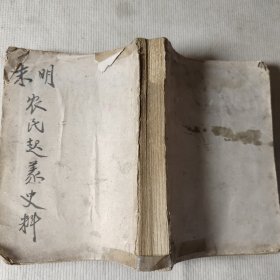 明末
农民起义史料